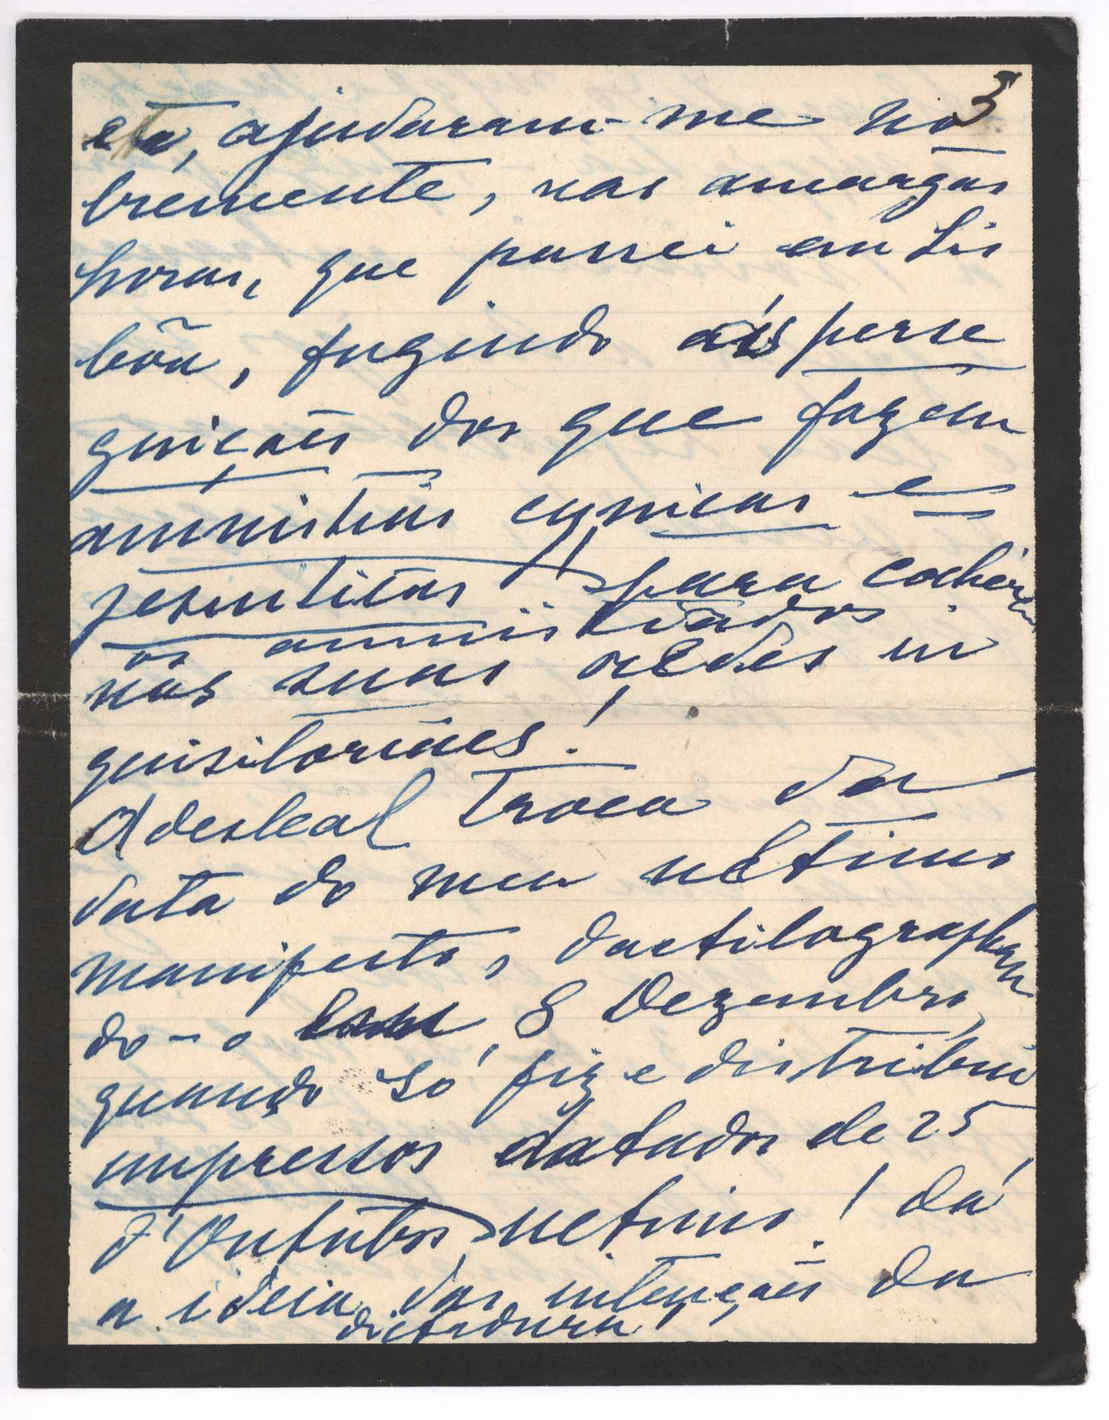 3
eta, ajudaram-me no
bremente, nas amargas
horas, que passei em Lis
bôa, fugindo ás perse
guições dos que fazem
amnistias cynicas e
jesuiticas para colherem
os amnistiados
nas suas rêdes in
quisitoriaes!
A desleal troca da
data do meu ultimo
manifesto, dactilographan
do-o 8 Dezembro,
quando só fiz e distribui
impressos datados de 25
d'Outubro ultimo! Dá
a ideia das intenções da
dictadura